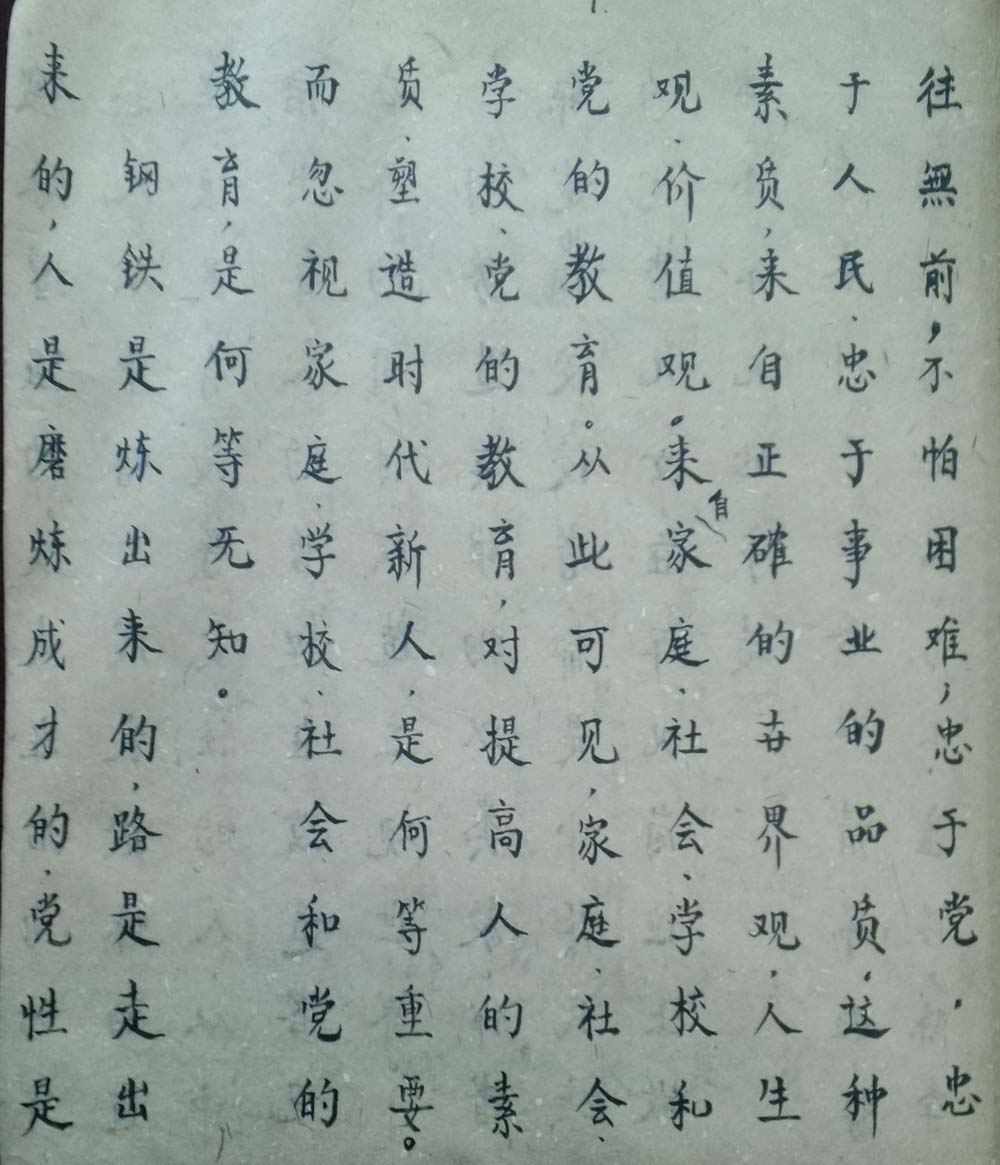 往無前，不怕困难；忠于党，忠
于人民、忠于事业的品质，这种
素质，来自正確的世界观，人生
观、价值观。来自家庭、社会、学校和
党的教育。从此可见，家庭、社会、
学校、党的教育，对提高人的素
质、塑造时代新人，是何等重要。
而忽视家庭、学校、社会和党的
教育，是何等无知。
钢铁是炼出来的，路是走出
来的，人是磨炼成才的、党性是